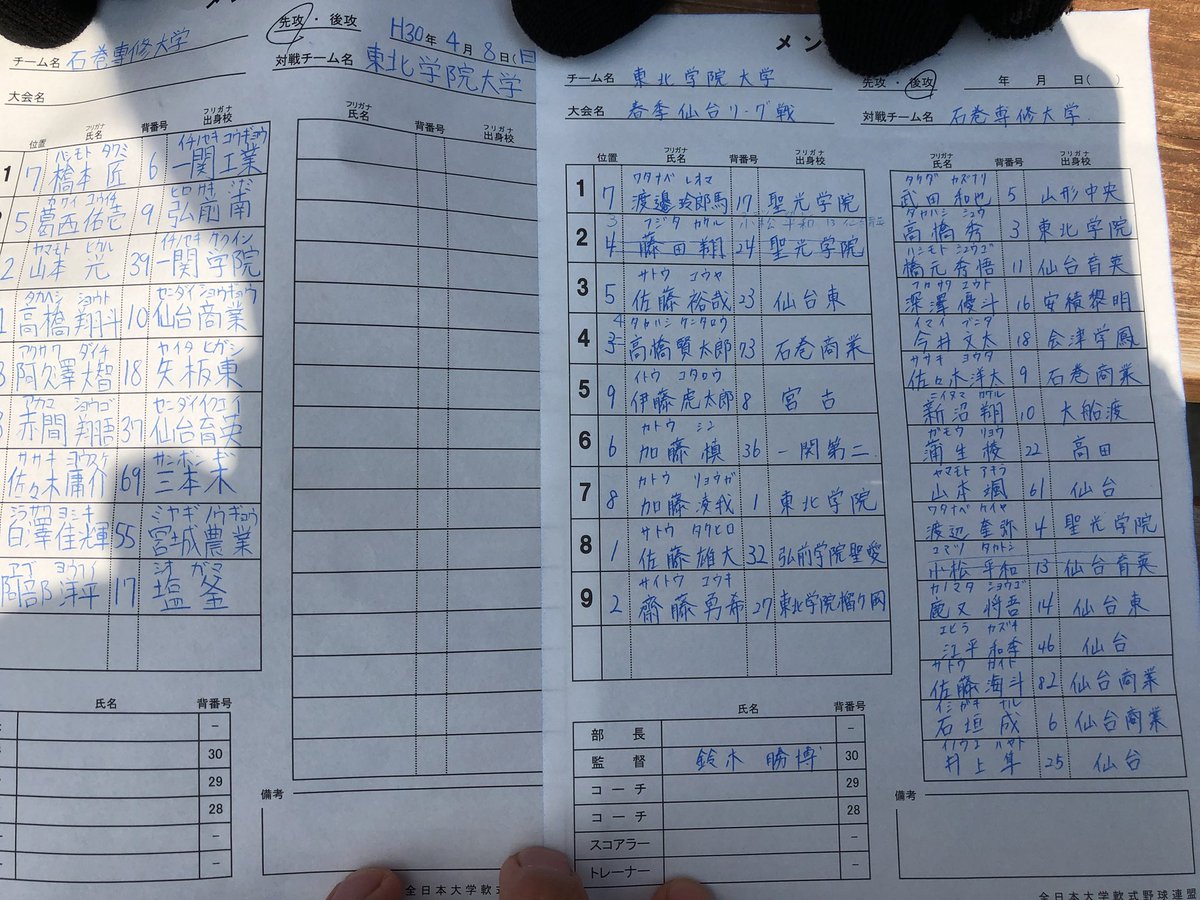 先攻・後攻
H30年 4月 8日(日
チーム名 石巻専修大学
対戦チーム名 東北学院大学
大会名
フリガナ
氏名 背番号 フリガナ
出身校
フリガナ
氏名 背番号 フリガナ
ハシモト タクミ イチノセキ コウギョウ
1 7 橋本 匠 6 一関工業
ヒロサキ
5 葛西佑壱 9 弘前南
ヤマモト ヒカル イチノセキ ガクイン
2 山本 光 39 一関学院
タカハシ ショウト センダイショウギョウ
高橋翔斗 10 仙台商業
アクサワ ダイチ ヤイタ ヒガシ
阿久澤大智 18 矢板東
アカマ ショウゴ センダイイクエイ
赤間翔悟 37 仙台育英
ササキ ヨウスケ サンボンギ
佐々木庸介 69 三本木
シラサワ ヨシキ ミヤギノウギョウ
白澤佳輝 55 宮城農業
アベ ヨウヘイ シオガマ
阿部洋平 17 塩釜
氏名 背番号
-
30
29
28
-
-
備考
全日本大学軟式
メン
チーム名 東北学院大学
先攻・後攻 年 月 日(
大会名 春季仙台リーグ戦
対戦チーム名 石巻専修大学
位置 フリガナ
氏名 背番号 フリガナ
出身校
ワタナベ レオマ
1 7 渡邊玲郎馬 17 聖光学院
3 フジタ カケル 小松平和 13 仙台育英
2 4 藤田翔 24 聖光学院
サトウ ユウヤ
3 5 佐藤裕哉 23 仙台東
4 タカハシ ケンタロウ
4 3 高橋賢太郎 73 石巻商業
イトウ コタロウ
5 9 伊藤虎太郎 8 宮古
カトウ シン
6 6 加藤慎 36 一関第二
カトウ リョウガ
7 8 加藤凌我 1 東北学院
サトウ タケヒロ
8 1 佐藤雄大 32 弘前学院聖愛
サイトウ ユウキ
9 2 齋藤勇希 27 東北学院榴ケ岡
フリガナ
氏名 背番号 フリガナ
出身校
タケダ カズナリ
武田和也 5 山形中央
タカハシ シュウ
高橋秀 3 東北学院
ハシモト シュウゴ
橋元秀悟 11 仙台育英
フカサワ ユウト
深澤優斗 16 安積黎明
イマイ ブンタ
今井文太 18 会津学鳳
ササキ ヨウタ
佐々木洋太 9 石巻商業
ニイヌマ カケル
新沼翔 10 大船渡
ガモウ リョウ
蒲生稜 22 高田
ヤマモト アキラ
山本颯 61 仙台
ワタナベ カイヤ
渡辺奎弥 4 聖光学院
コマツ タカトシ
小松平和 13 仙台育英
カノマタ ショウゴ
鹿又将吾 14 仙台東
エヒラ カズキ
江平和季 46 仙台
サトウ カイト
佐藤海斗 82 仙台商業
イシガキ ナル
石垣成 6 仙台商業
イノウエ ハヤト
井上隼 25 仙台
氏名 背番号
部長 -
監督 鈴木勝博 30
コーチ 29
コーチ 28
スコアラー -
トレーナー -
備考
全日本大学軟式野球連盟